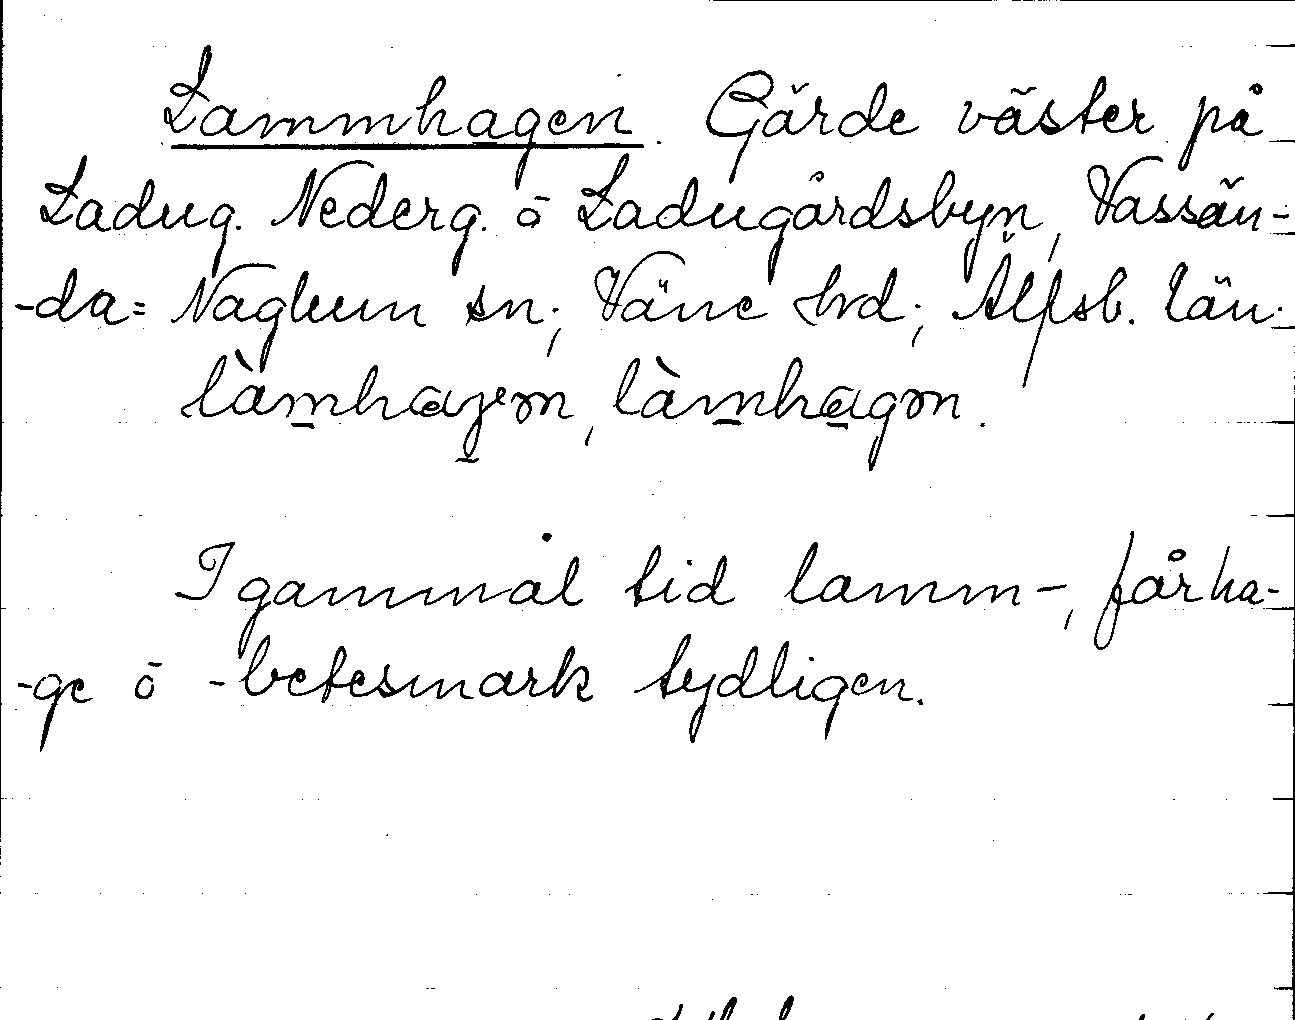 Lammhagen. Gärde väster på
Ladug. Nederg. ō Ladugårdsbyn, Vassän-
-da= Naglum sn; Väne hrd; Älfsb. län.
làmhaɡem, làmhagm.
I gammal tid lamm-, fårha-
-ge ō -betesmark tydligen.